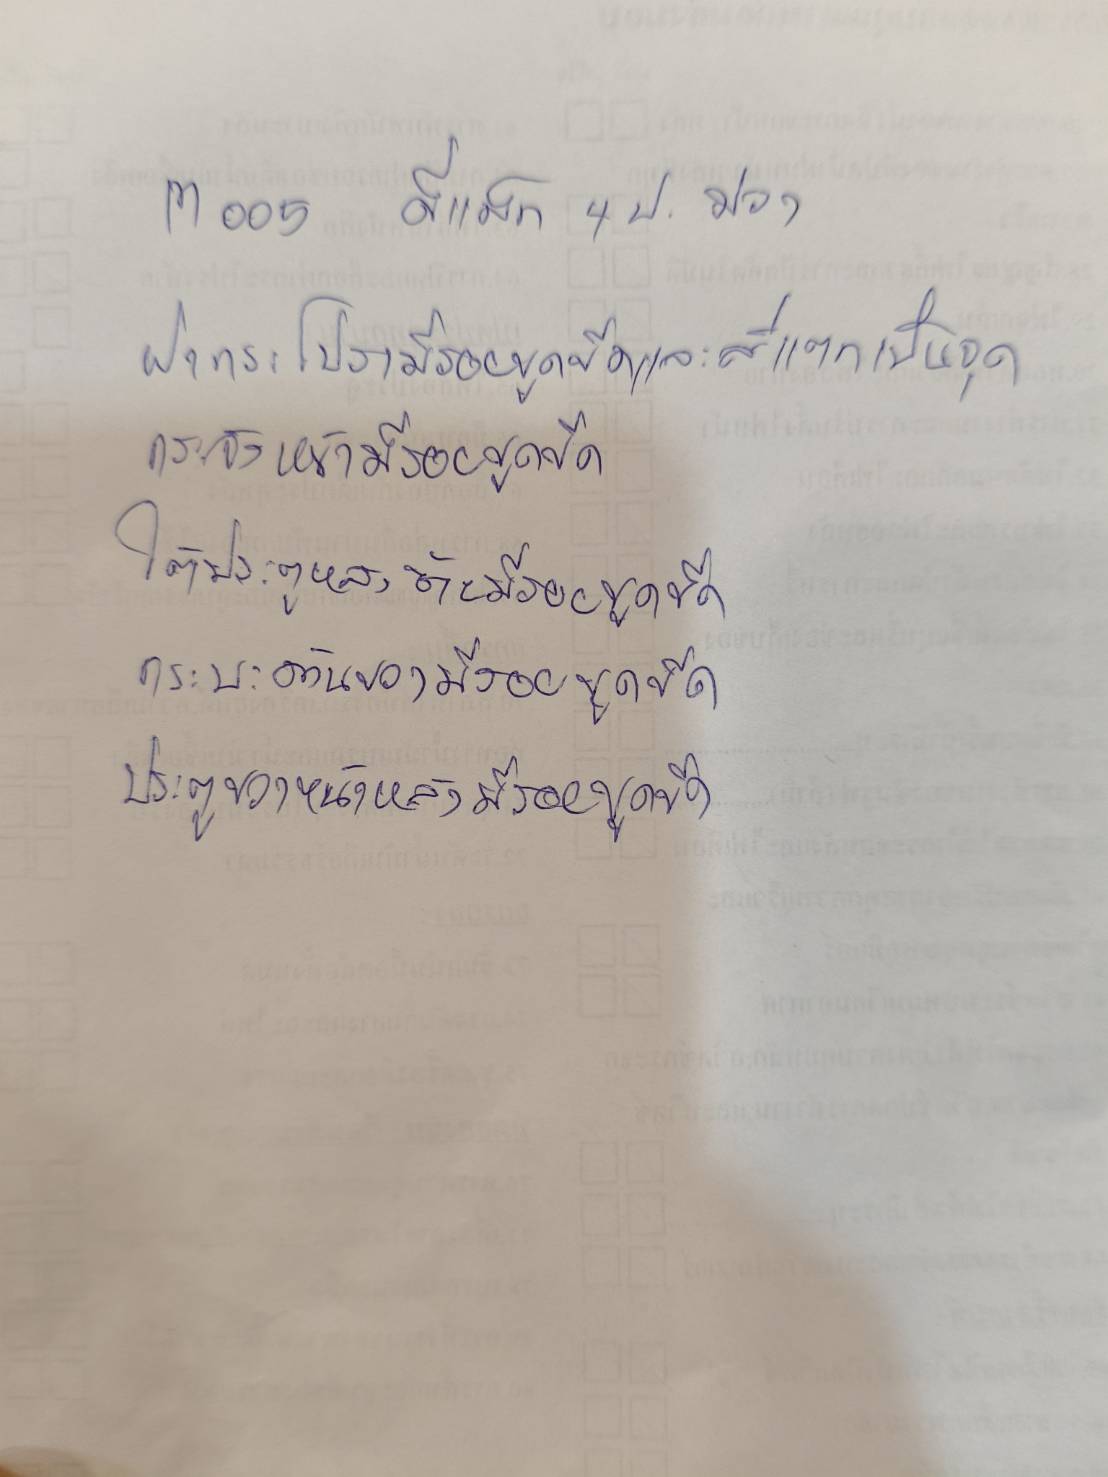 M 005 ดีแม็ก 4 ป. ม่วง
ฝากระโปรงมีรอยขูดขีดและสีแตกเป็นจุด
กระจังหน้ามีรอยขูดขีด
ใต้ประตูหลังซ้ายมีรอยขูดขีด
กระบะด้านขวามีรอยขูดขีด
ประตูขวาหน้าหลังมีรอยขูดขีด